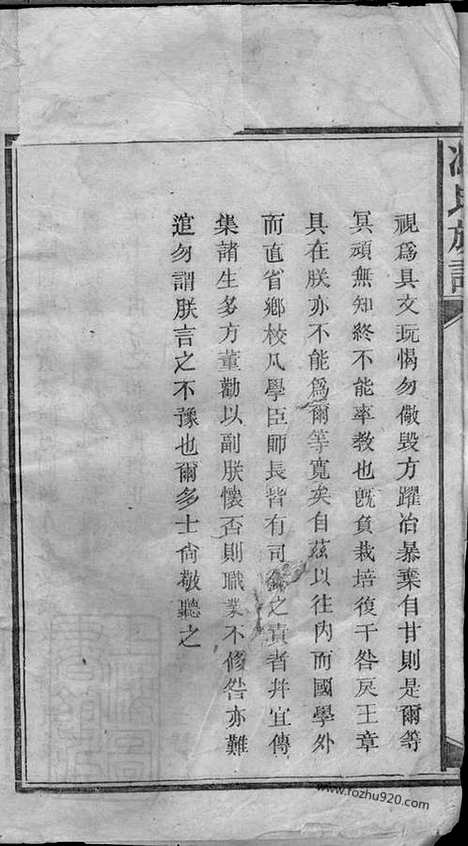 視爲具文玩愒勿儆毀方躍冶暴棄自甘則是爾等
冥頑無知終不能率敎也旣負栽培復干咎戾王章
具在朕亦不能爲爾等寬矣自茲以往內而國學外
而直省鄉校凡學臣師長皆有司鐸之責者幷宜傳
集諸生多方董勸以副朕懷否則職業不修咎亦難
逭勿謂朕言之不豫也爾多士尙敬聽之
氏族譜
www.fozhu920.com